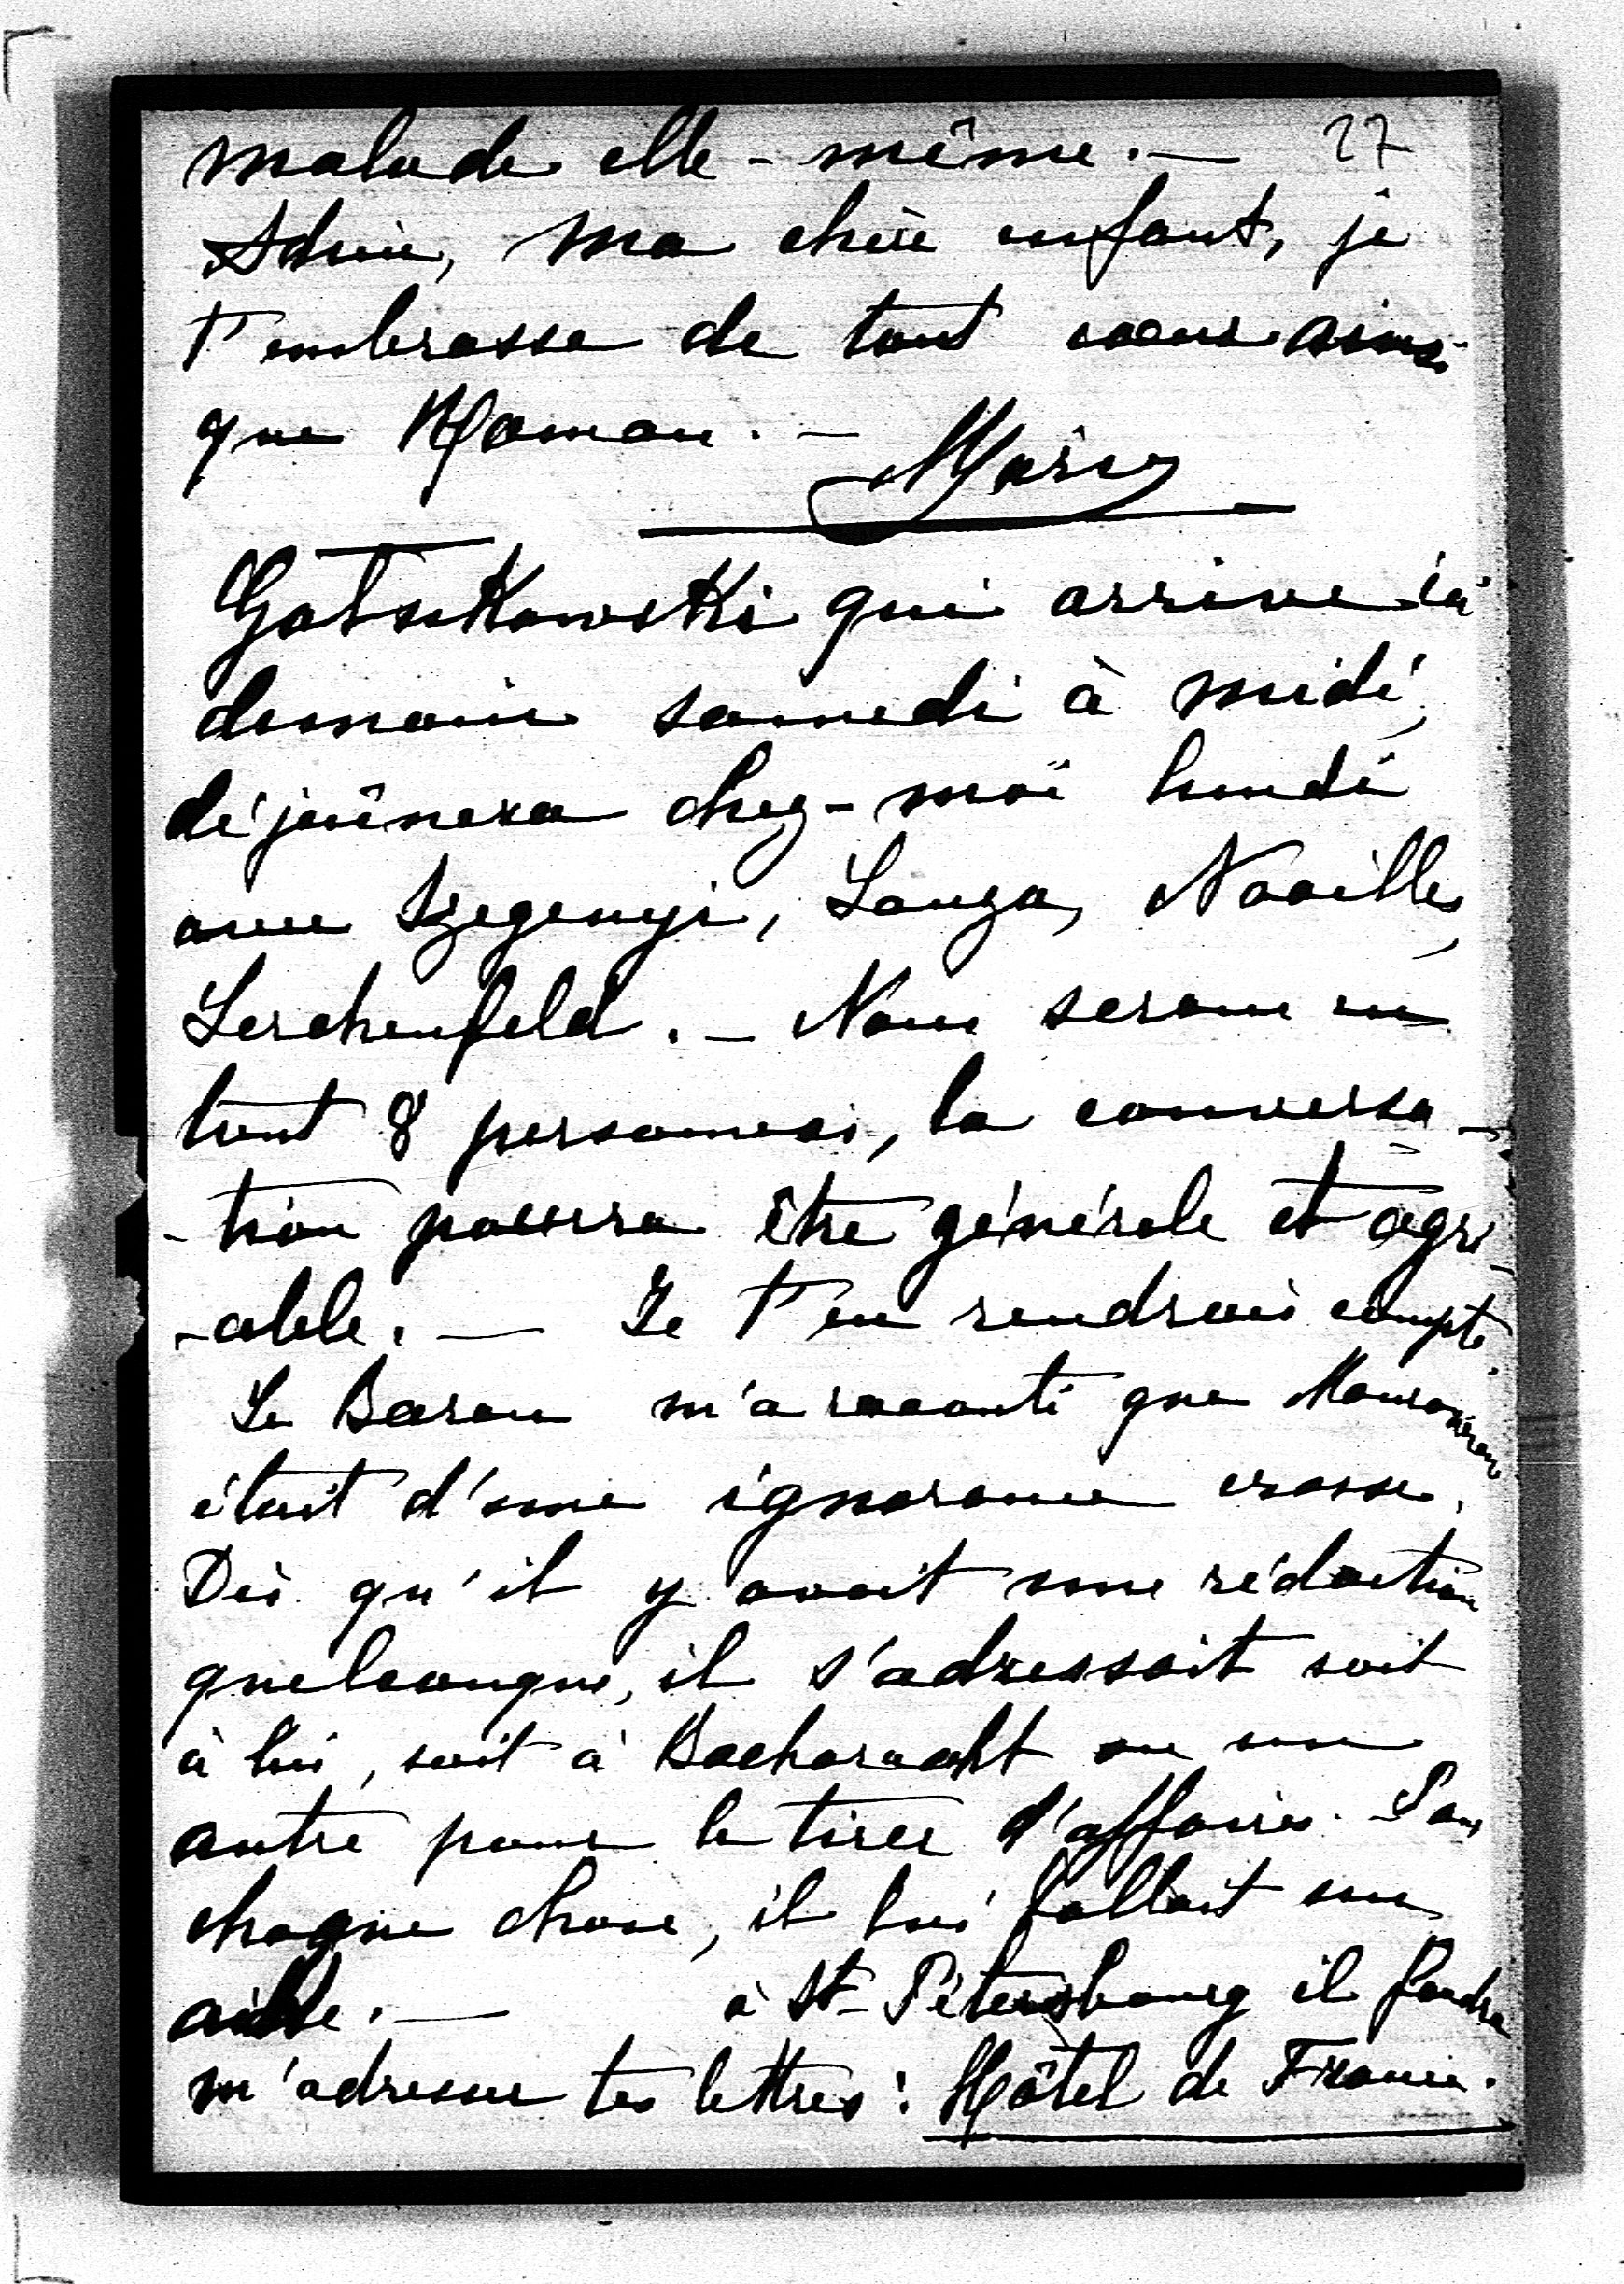 malade elle-même. — 27
Adieu, ma chère enfant, je
t'embrasse de tout coeur ainsi
que Maman. —
Marie
Gotschkowski qui arrive ici
demain samedi à midi,
déjeûnera chez-moi lundi
avec Szegenyi, Lanza, Noailles,
Lerchenfeld. — Nous serons en
tout 8 personnes, la conversa-
-tion pourra être générale et agré-
-able. — Je t'en rendrais compte.
Le Baron m'a raconté que
était d'une ignorance crasse.
Dès qu'il y avait une rédaction
quelconque, il s'adressait soit
à lui, soit à Bacharacht ou un
autre pour le tirer d'affaires. Pour
chaque chose, il lui fallait un
aide. — à St-Pétersbourg il faudra
m'adresser tes lettres: Hôtel de France.